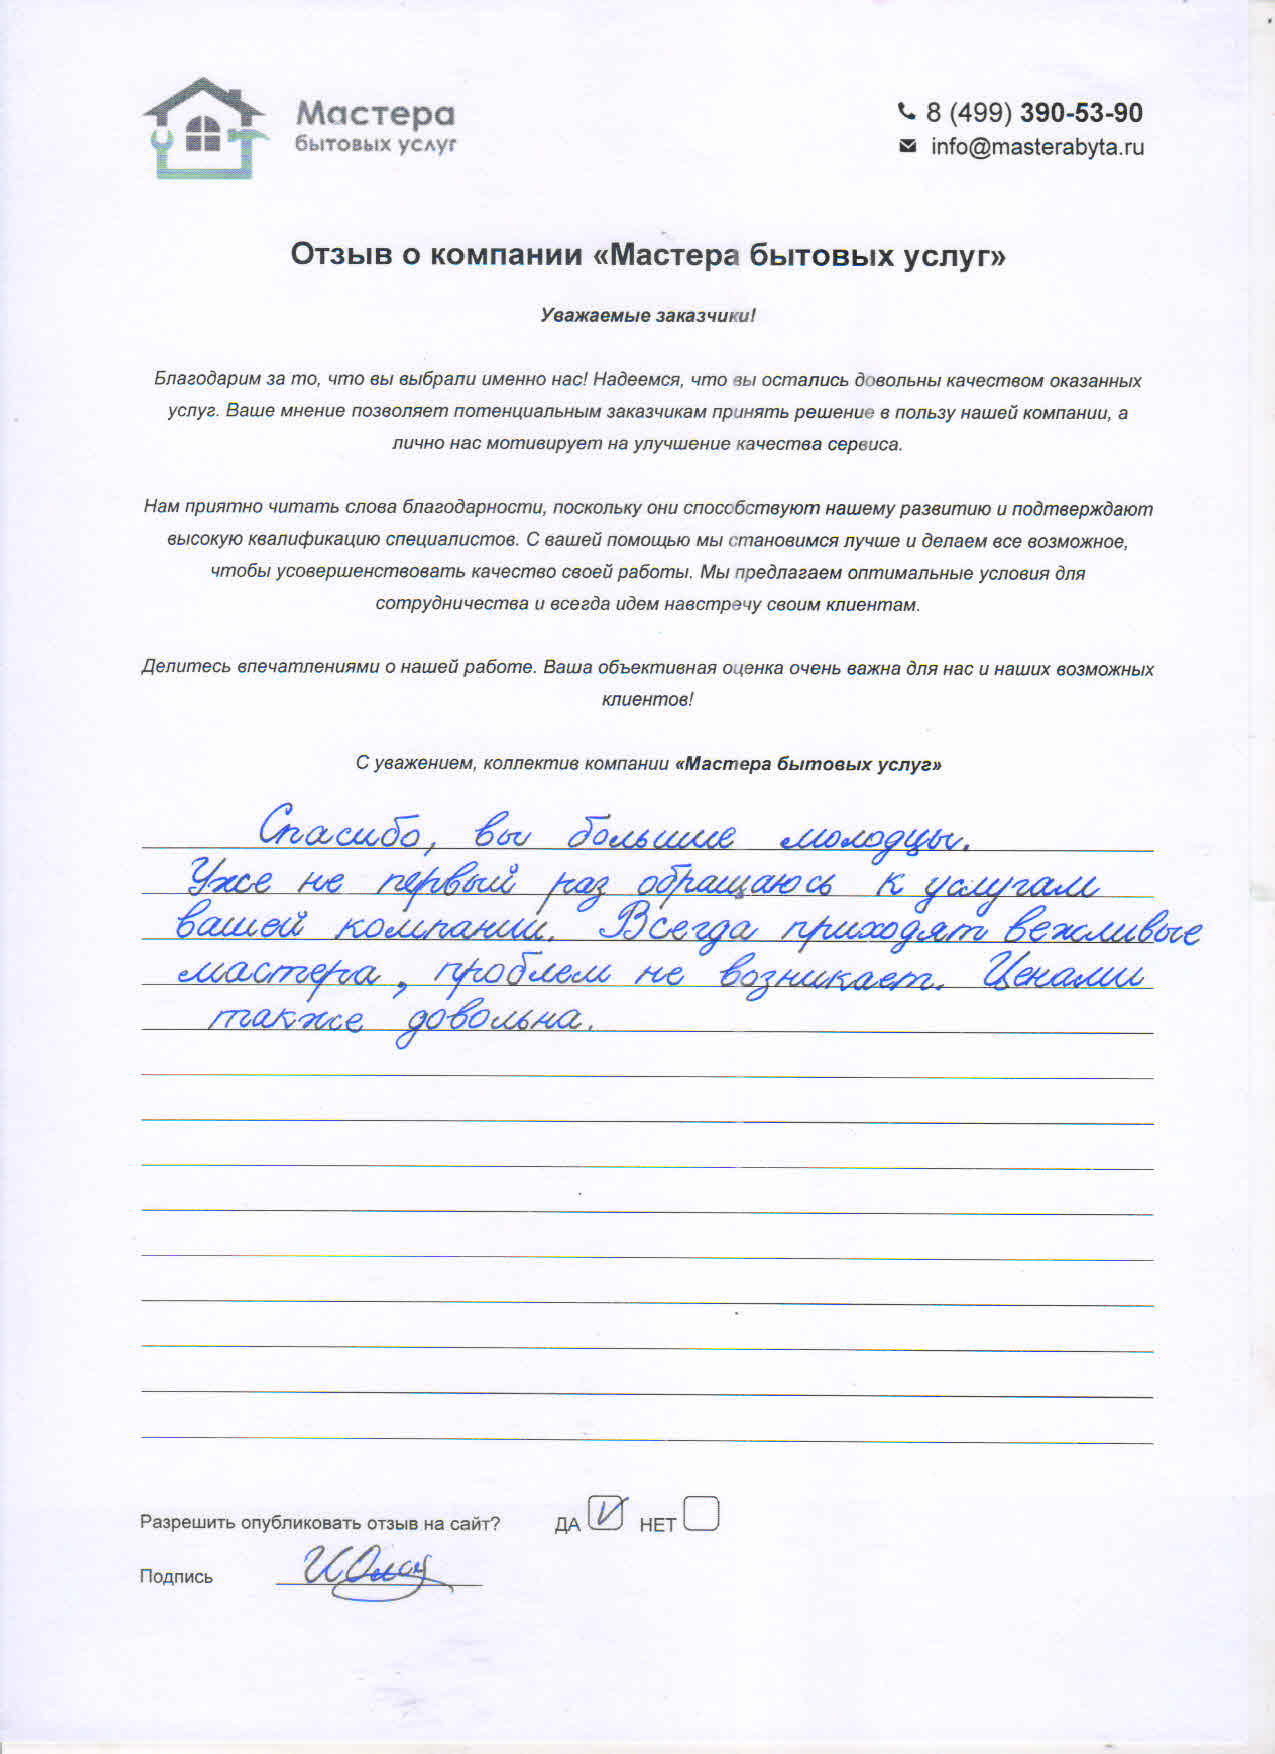 Мастера
бытовых услуг
8 (499) 390-53-90
info@masterabyta.ru
Отзыв о компании «Мастера бытовых услуг»
Уважаемые заказчики!
Благодарим за то, что вы выбрали именно нас! Надеемся, что вы остались довольны качеством оказанных
услуг. Ваше мнение позволяет потенциальным заказчикам принять решение в пользу нашей компании, а
лично нас мотивирует на улучшение качества сервиса.
Нам приятно читать слова благодарности, поскольку они способствуют нашему развитию и подтверждают
высокую квалификацию специалистов. С вашей помощью мы становимся лучше и делаем все возможное,
чтобы усовершенствовать качество своей работы. Мы предлагаем оптимальные условия для
сотрудничества и всегда идем навстречу своим клиентам.
Делитесь впечатлениями о нашей работе. Ваша объективная оценка очень важна для нас и наших возможных
клиентов!
С уважением, коллектив компании «Мастера бытовых услуг»
Спасибо, вы большие молодцы.
Уже не первый раз обращаюсь к услугам
вашей компании. Всегда приходят вежливые
мастера, проблем не возникает. Ценами
также довольна.
Разрешить опубликовать отзыв на сайт? ДА НЕТ
Подпись